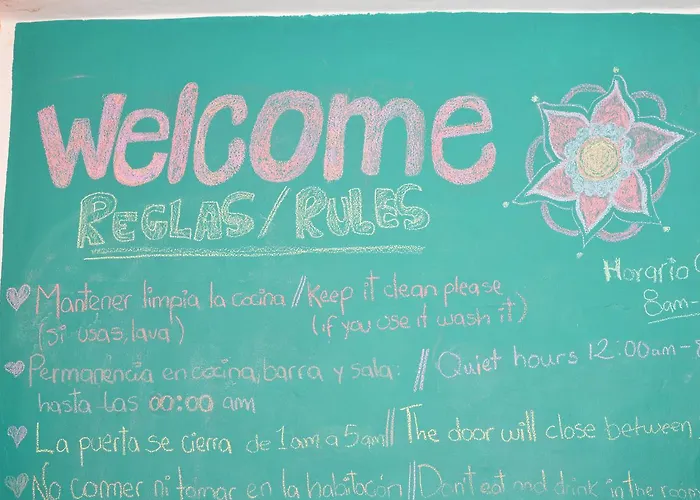 Welcome
REGLAS/RULES
Horario
8am-
Mantener limpia la cocina // Keep it clean please
(si usas, lava) (if you use it wash it)
Permanencia en cocina, barra y sala: // Quiet hours 12:00am-
hasta las 00:00 am
La puerta se cierra de 1am a 5am // The door will close between
No comer ni tomar en la habitación // Don't eat and drink in the room